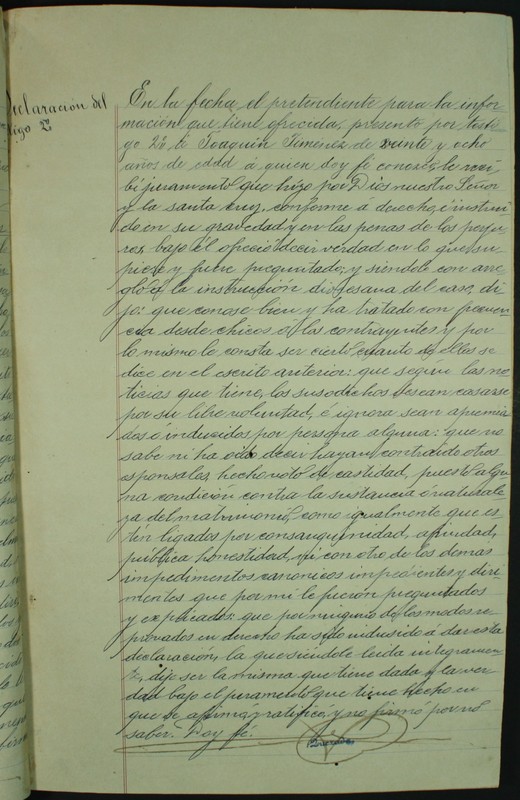 Declaración del
tigo 2º
En la fecha el pretendiente para la infor
macion que tiene ofrecida, presento por testi
go 2º á Joaquin Jimenez de veinte y ocho
años de edad á quien doy fé conozco, le reci
bí juramento que hizo por Dios nuestro Señor
y la santa cruz, conforme á derecho, é instrui
do en su gravedad y en las penas de los perju
ros, bajo él ofreció decir verdad en lo que su
piere y fuere preguntado, y siendole con arre
glo á la instrucción diocesana del caso, di
jo: que conose bien y ha tratado con frecuen
cia desde chicos á los contrayentes y por
lo mismo le consta ser cierto cuanto de ellos se
dice en el escrito anterior: que segun las no
ticias que tiene, los susodichos desean casarse
por su libre voluntad, é ignora sean apremia
dos ó inducidos por persona alguna: que no
sabe ni ha oido decir hayan contraido otros
esponsales, hecho voto de castidad, puesto algu
na condición contra la sustancia ó naturale
za del matrimonio, como igualmente que es
tén ligados por consanguinidad, afinidad,
pública honestidad, ni con otro de los demas
impedimentos canonicos impedientes y diri
mentes que por mi le fueron preguntados
y explicados: que por ninguno de los modos re
probados en derecho ha sido indusido á dar esta
declaración, la que siendole leida integramen
te, dijo ser la misma que tiene dada y la ver
dad bajo el juramento que tiene hecho en
que se afirmó, ratificó, y no firmó por no
saber. Doy fé.